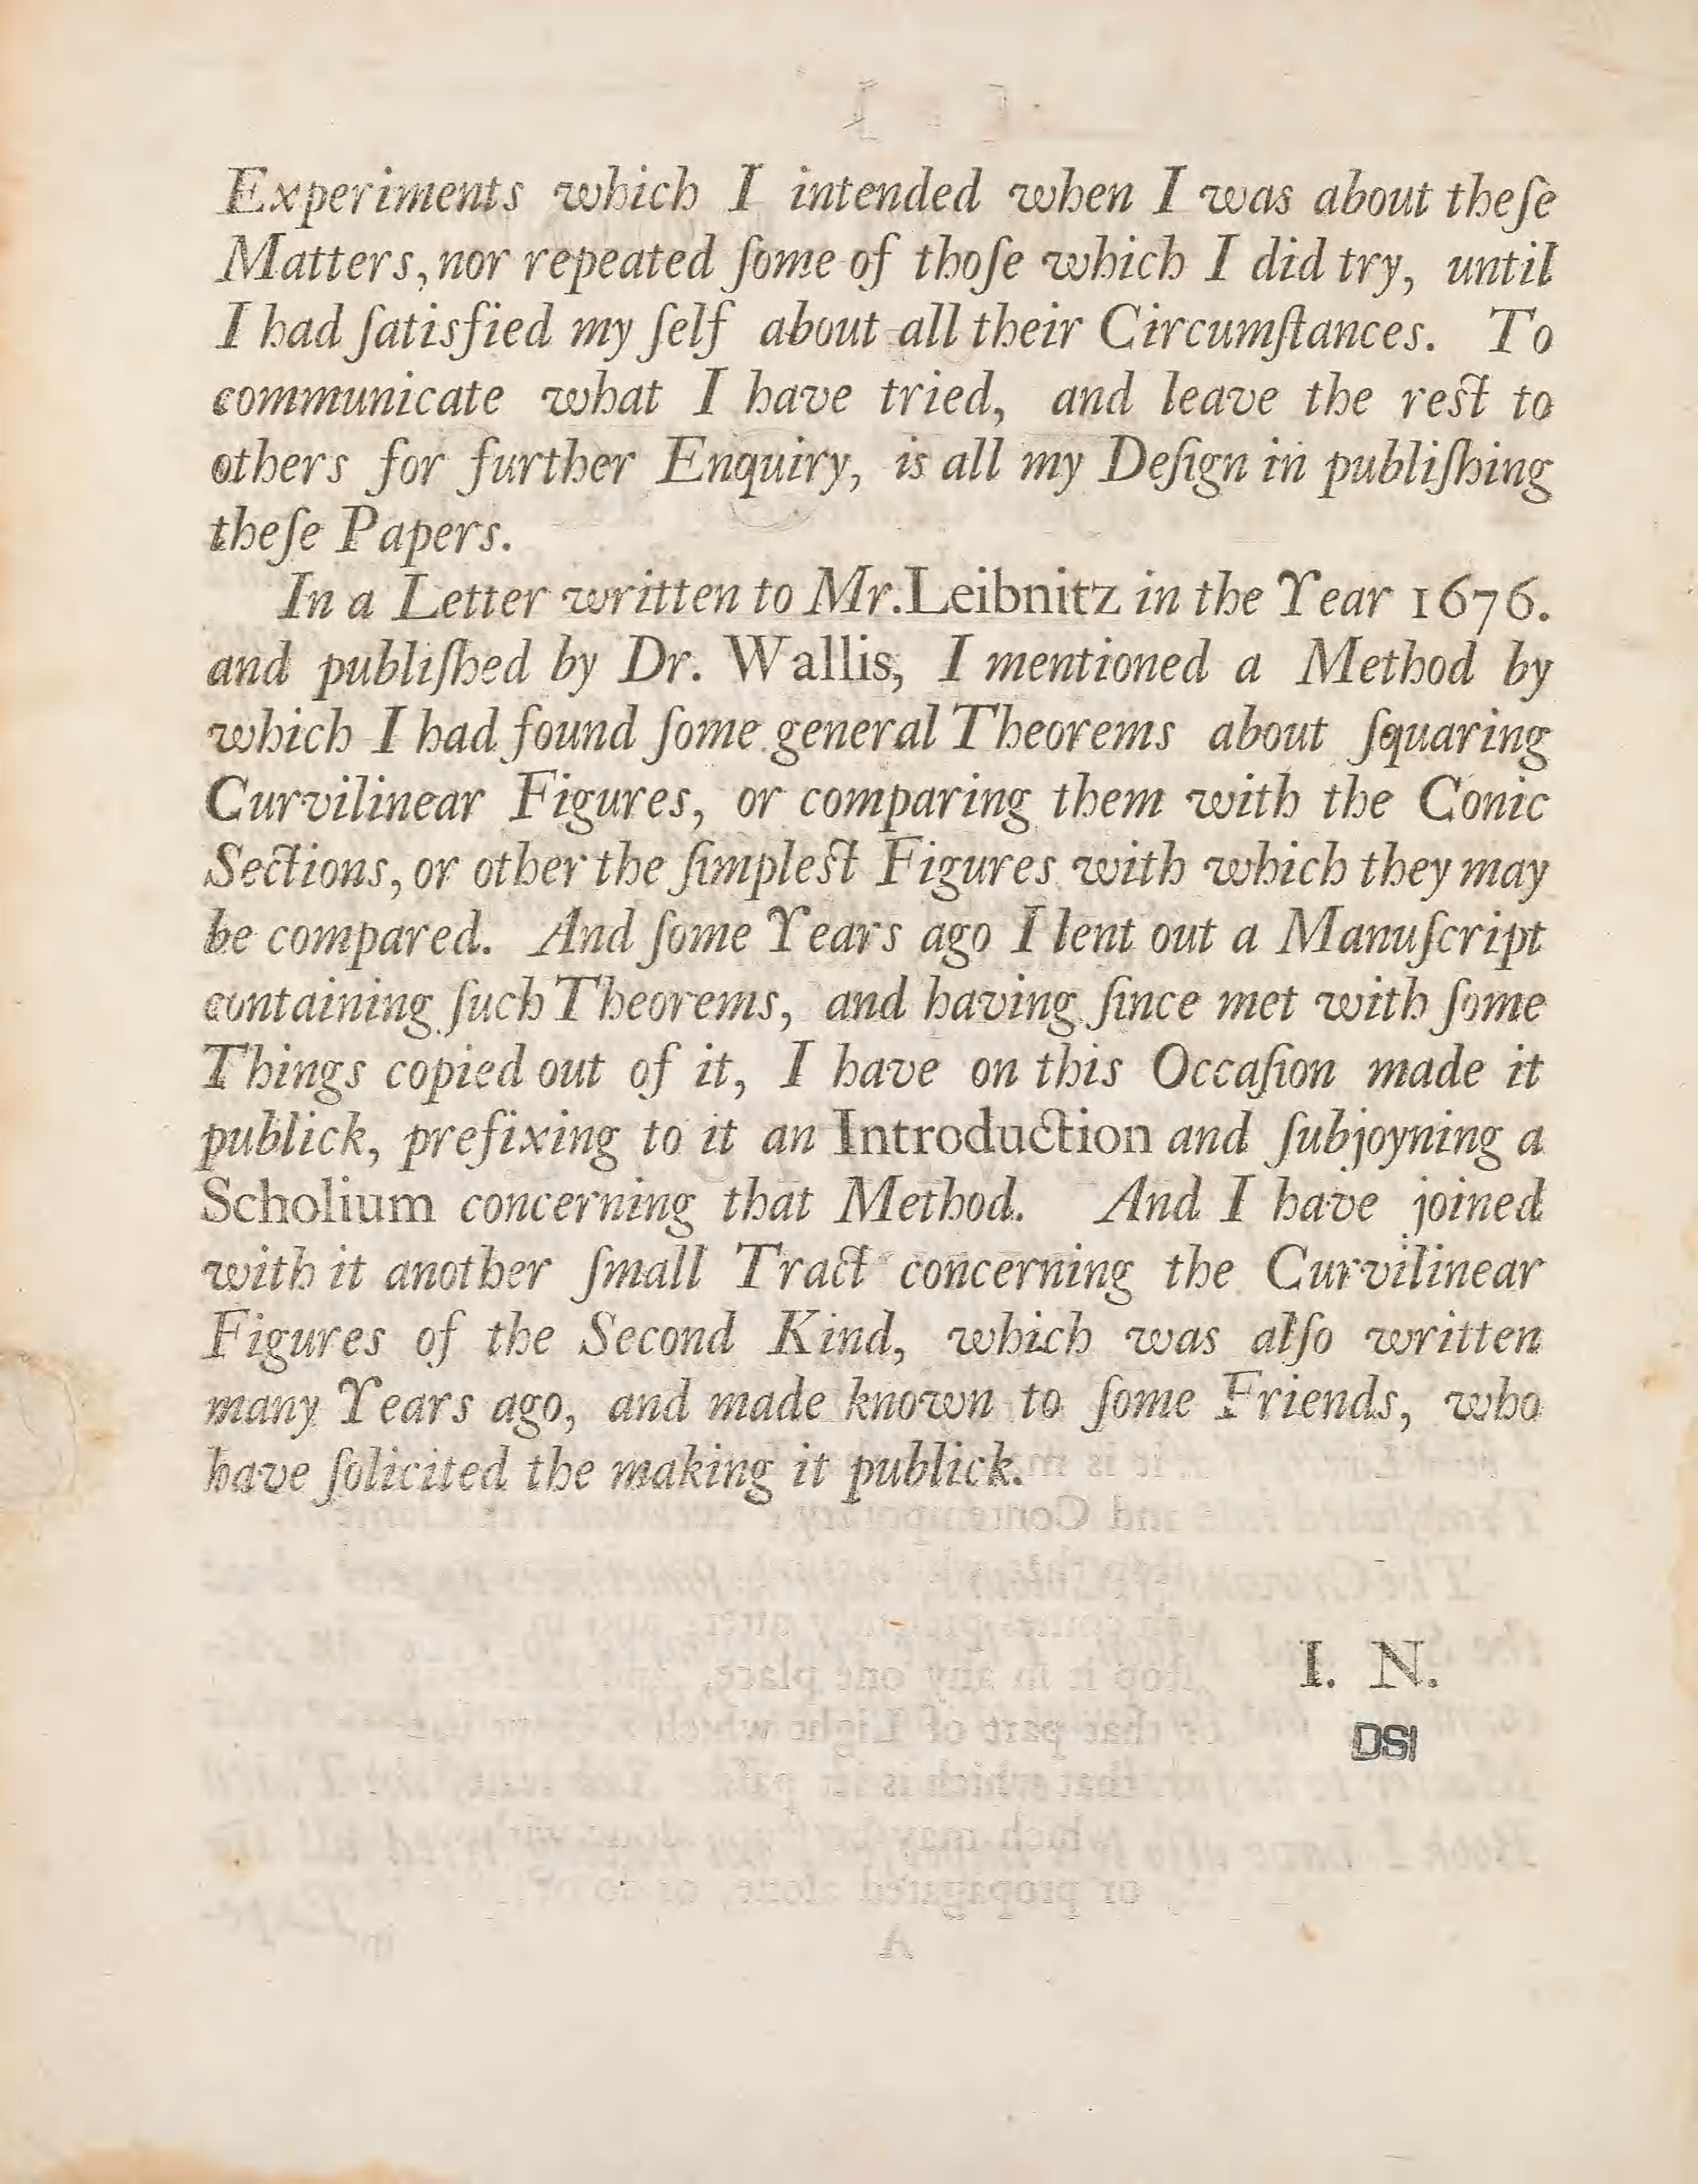 Experiments which I intended when I was about theſe
Matters, nor repeated ſome of thoſe which I did try, until
I had ſatisfied my ſelf about all their Circumſtances. To
communicate what I have tried, and leave the reſt to
others for further Enquiry, is all my Deſign in publiſhing
theſe Papers.
In a Letter written to Mr. Leibnitz in the Year 1676.
and publiſhed by Dr. Wallis, I mentioned a Method by
which I had found ſome general Theorems about ſquaring
Curvilinear Figures, or comparing them with the Conic
Sections, or other the ſimpleſt Figures with which they may
be compared. And ſome Years ago I lent out a Manuſcript
containing ſuch Theorems, and having ſince met with ſome
Things copied out of it, I have on this Occaſion made it
publick, prefixing to it an Introduction and ſubjoyning a
Scholium concerning that Method. And I have joined
with it another ſmall Tract concerning the Curvilinear
Figures of the Second Kind, which was alſo written
many Years ago, and made known to ſome Friends, who
have ſolicited the making it publick.
I. N.
DSI